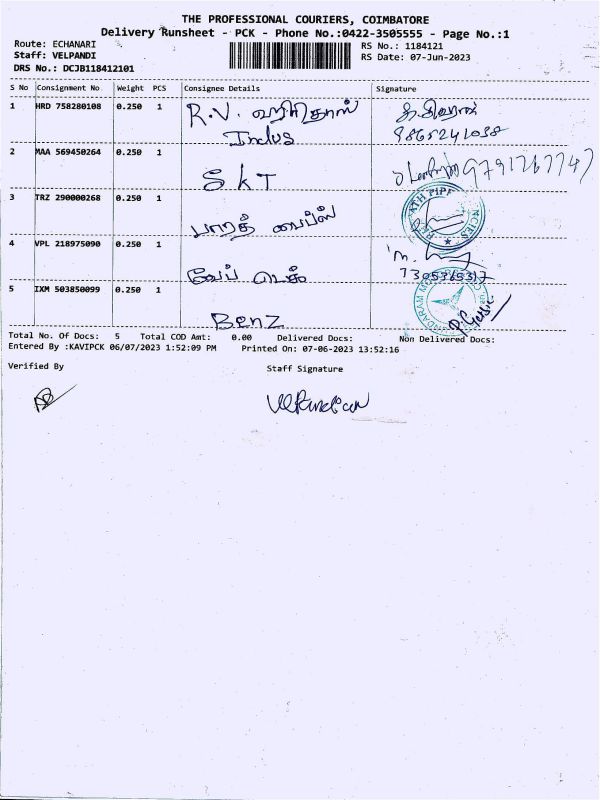 THE PROFESSIONAL COURIERS, COIMBATORE
Delivery Runsheet - PCK - Phone No.:0422-3505555 - Page No.:1
Route: ECHANARI
RS No.: 1184121
Staff: VELPANDI
RS Date: 07-Jun-2023
DRS No.: DCJB118412101
S No Consignment No Weight PCS Consignee Details Signature
1 HRD 758280108 0.250 1 R.V. ஹரிதாஸ்
Indus
9865241038
2 MAA 569450264 0.250 1 SKT
3 TRZ 290000268 0.250 1 பாரத் பைப்ஸ்
4 VPL 218975090 0.250 1 வேப் டெக்
7305365317
5 IXM 503850099 0.250 1 Benz
Total No. Of Docs: 5 Total COD Amt: 0.00 Delivered Docs: Non Delivered Docs:
Entered By :KAVIPCK 06/07/2023 1:52:09 PM Printed On: 07-06-2023 13:52:16
Verified By Staff Signature